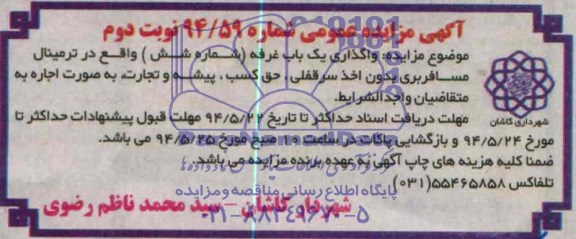 آگهی مزایده عمومی شماره ۹۴/۵۹ نوبت دوم
موضوع مزایده: واگذاری یک باب غرفه (شماره شش) واقع در ترمینال
مسافربری بدون اخذ سرقفلی، حق کسب، پیشه و تجارت، به صورت اجاره به
متقاضیان واجدالشرایط.
مهلت دریافت اسناد حداکثر تا تاریخ ۹۴/۵/۲۲ مهلت قبول پیشنهادات حداکثر تا
مورخ ۹۴/۵/۲۴ و بازگشایی پاکات در ساعت ۱۰ صبح مورخ ۹۴/۵/۲۵ می باشد.
ضمنا کلیه هزینه های چاپ آگهی به عهده برنده مزایده می باشد.
تلفاکس ۵۵۴۶۵۸۵۸(۰۳۱)
شهرداری کاشان
پایگاه اطلاع رسانی مناقصه و مزایده
شهردار کاشان – سید محمد ناظم رضوی
۰۲۱-۸۸۳۴۹۶۷۰-۵